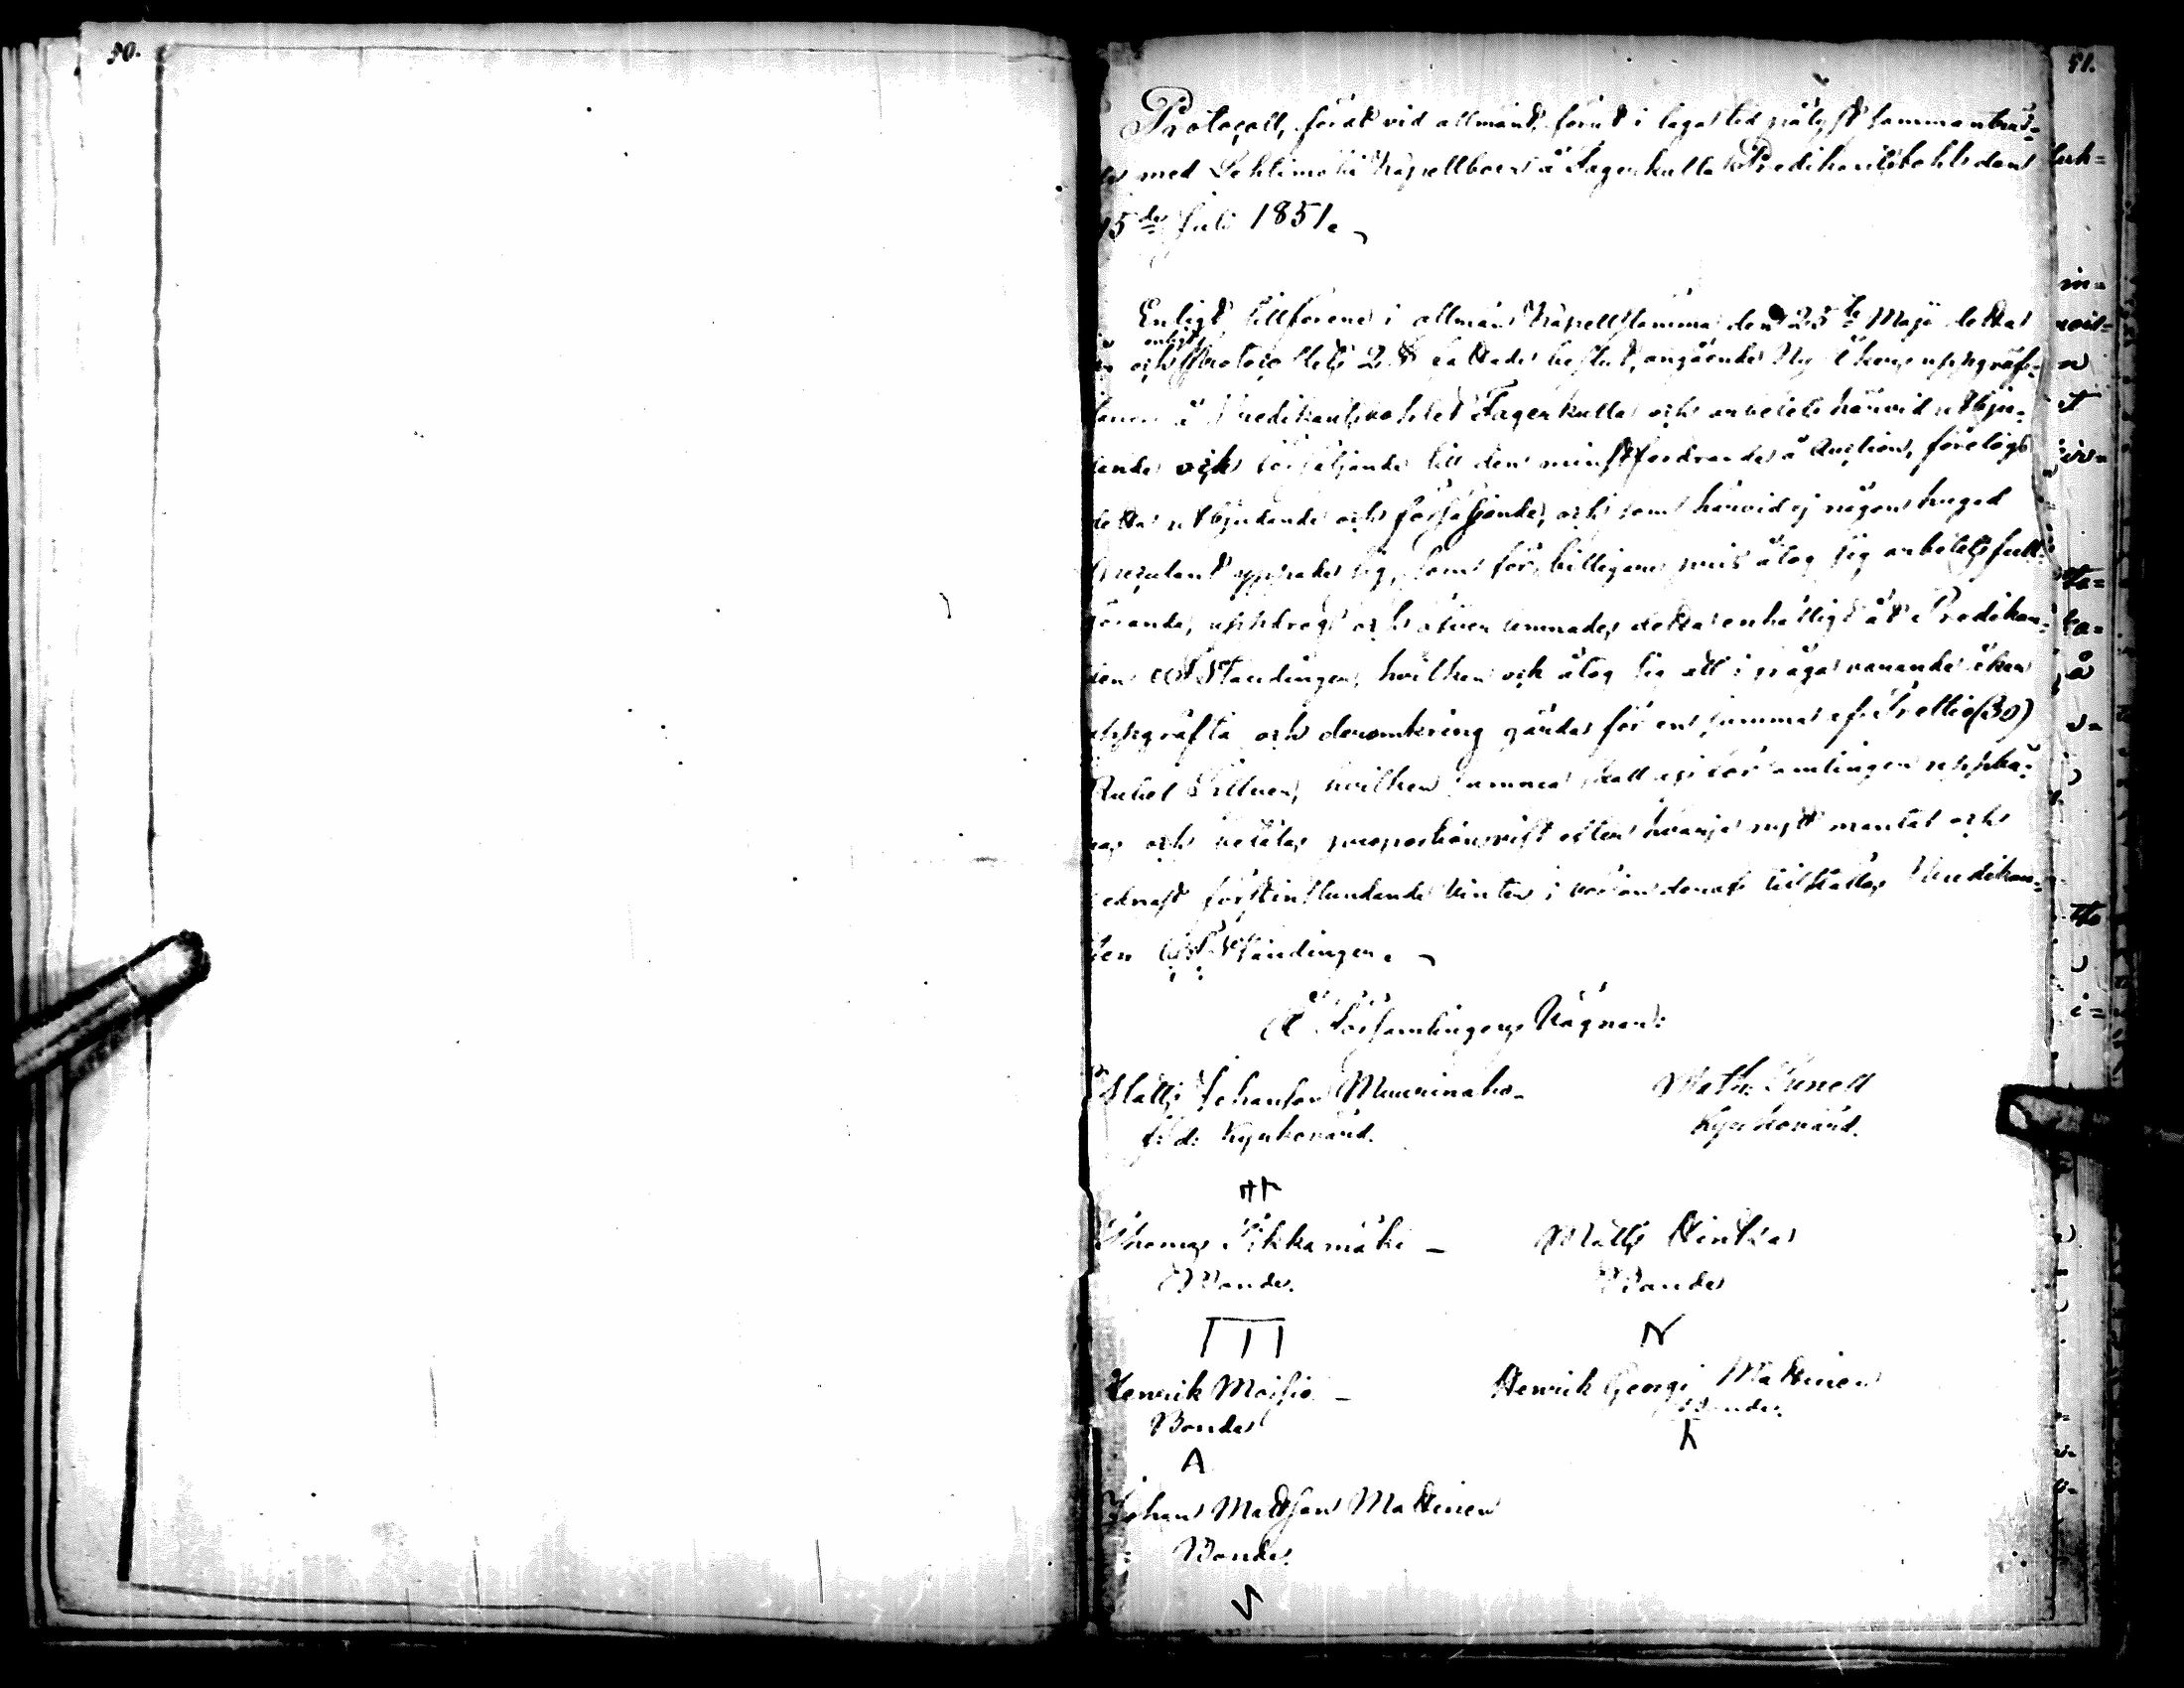 50.
51.
Protocoll, fördt vid allmänt, förut i laga tid pålyst sammanträ-
de med Lehtimäki Kapellboer å Fagerkulla Predikantsbohl den
15de Juli 1851.
Enligt tillförene i allmän Kapellstämma den 25te Maji detta
och enligt Protocollets 2 § fattade beslut, angående Ny åkers uppgräf-
å Predikantsbohlet Fagerkulla och arbetets härvid utbju-
dande och försäljande till den minstfordrande å Auction, företogs
detta utbjudande och försäljande, och som härvid ej någon hugad
Speculant yppade sig, som för billigare pris åtog sig arbetets full-
görande, uppdrogs och öfverlemnades detta enhälligt åt Predikan-
ten Ståudinger, hvilken ock åtog sig att i fråga varande åker
uppgräfta och deromkring gärda för en summa af Trettio (30)
Rubel Silfver, hvilken summa skall af församlingen uppbä-
ras och betalas proportionsvist efter hvarje nytt mantal och
sednast förstinstundande Vinter i början deraf tillställas Predikan-
ten Ståudinger.
Å Församlingens Vägnar:
Matts Johansson Muurinaho
f. d. Kyrkovärd.
Math: Sunell
Kyrkovärd.
Thomas Pikkamäki
Bonde.
Matts Hintsa
Bonde
Henrik Moisio
Bonde
Henrik Georgi Mattinen
Bonde.
Johan Mattsson Mattinen
Bonde.